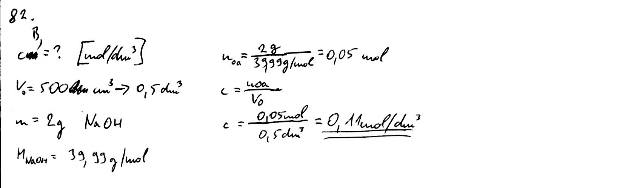 82.
B,
c = ? [mol/dm³]
V₀ = 500 cm³ → 0,5 dm³
m = 2g NaOH
M NaOH = 39,99 g/mol
n₀ₐ = 2g / 39,99 g/mol = 0,05 mol
c = n₀ₐ / V₀
c = 0,05 mol / 0,5 dm³ = 0,11 mol/dm³